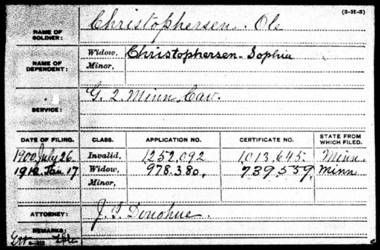 (3-H-8)
NAME OF SOLDIER: Christophersen. Ole
NAME OF DEPENDENT: Widow, Christophersen- Sophia
Minor,
SERVICE: G. 2. Minn. Cav.
DATE OF FILING. CLASS. APPLICATION NO. CERTIFICATE NO. STATE FROM WHICH FILED.
1900 July 26. Invalid, 1,252,092 1,013,645. Minn.
1912 Jan 17 Widow, 978,380. 739,559. Minn.
Minor,
ATTORNEY: J. S. Donohue.
REMARKS: